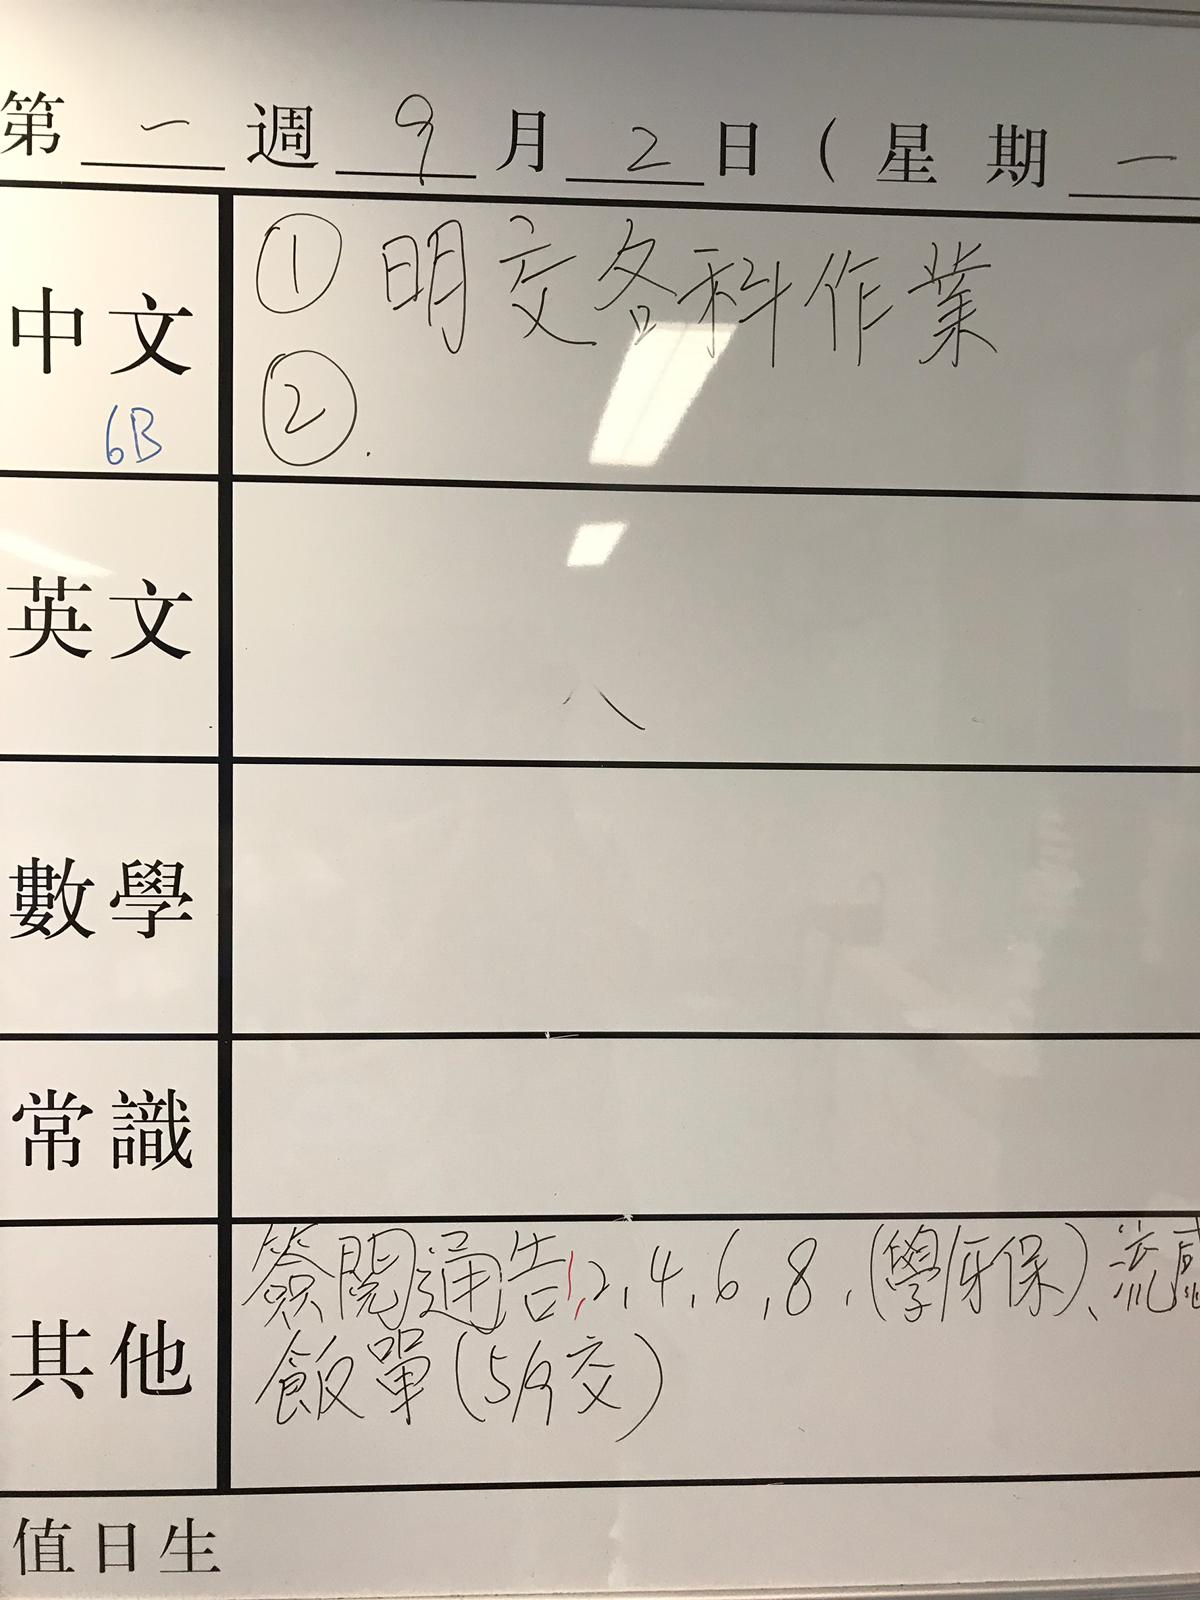 第 一 週 9 月 2 日 ( 星 期 一
中文
6B
① 明交各科作業
② .
英文
數學
常識
其他
簽閱通告1,2,4,6,8,(學牙保)、流感
飯單(5/9交)
值日生